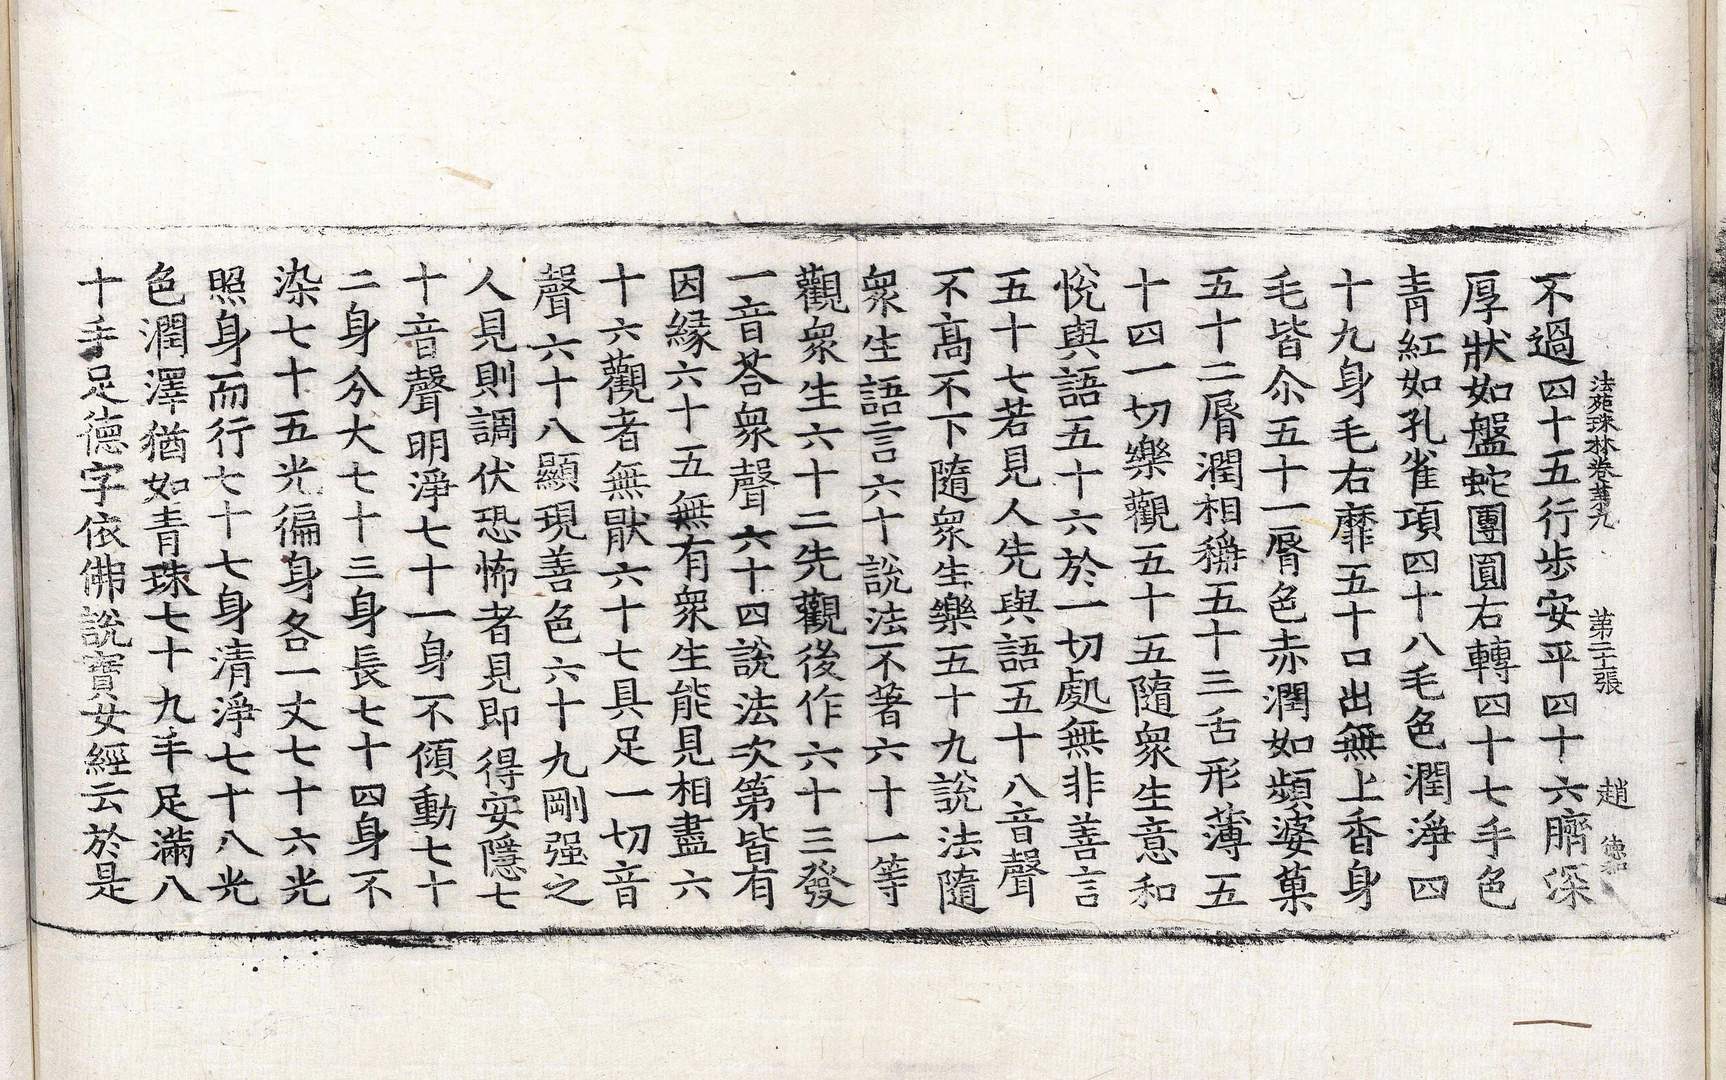 法苑珠林卷第九 第二十張 趙 德和
不過四十五行步安平四十六臍深
厚狀如盤蛇團圓右轉四十七手色
青紅如孔雀項四十八毛色潤淨四
十九身毛右靡五十口出無上香身
毛皆尒五十一脣色赤潤如頻婆菓
五十二脣潤相稱五十三舌形薄五
十四一切樂觀五十五隨衆生意和
悅與語五十六於一切處無非善言
五十七若見人先與語五十八音聲
不高不下隨衆生樂五十九說法隨
衆生語言六十說法不著六十一等
觀衆生六十二先觀後作六十三發
一音荅衆聲六十四說法次第皆有
因緣六十五無有衆生能見相盡六
十六觀者無猒六十七具足一切音
聲六十八顯現善色六十九剛强之
人見則調伏恐怖者見即得安隱七
十音聲明淨七十一身不傾動七十
二身分大七十三身長七十四身不
染七十五光徧身各一丈七十六光
照身而行七十七身清淨七十八光
色潤澤猶如青珠七十九手足滿八
十手足德字依佛說寶女經云於是